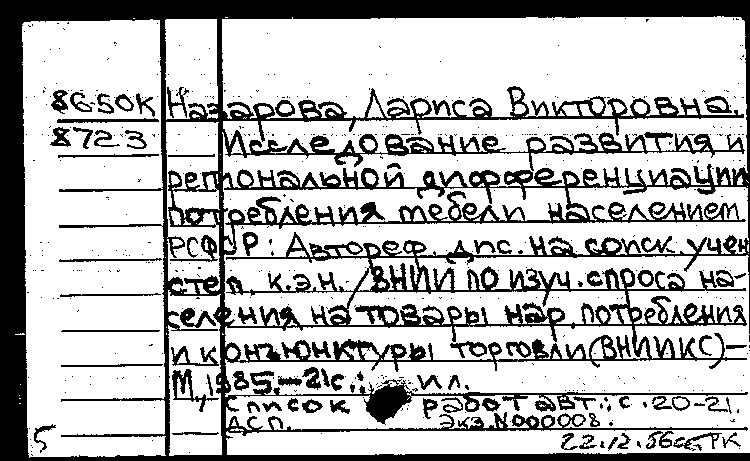 8650К Назарова, Лариса Викторовна.
8723 Исследование развития и
региональной дифференциации
потребления мебели населением
РСФСР: Автореф. дис. на соиск. учен
степ. к.э.н. / ВНИИ по изуч. спроса на-
селения на товары нар. потребления
и конъюнктуры торговли (ВНИИКС) –
М., 1985. – 21с.: ил.
Список работ авт.: с. 20-21.
ДСП. Экз. N000008.
5 22.12.56